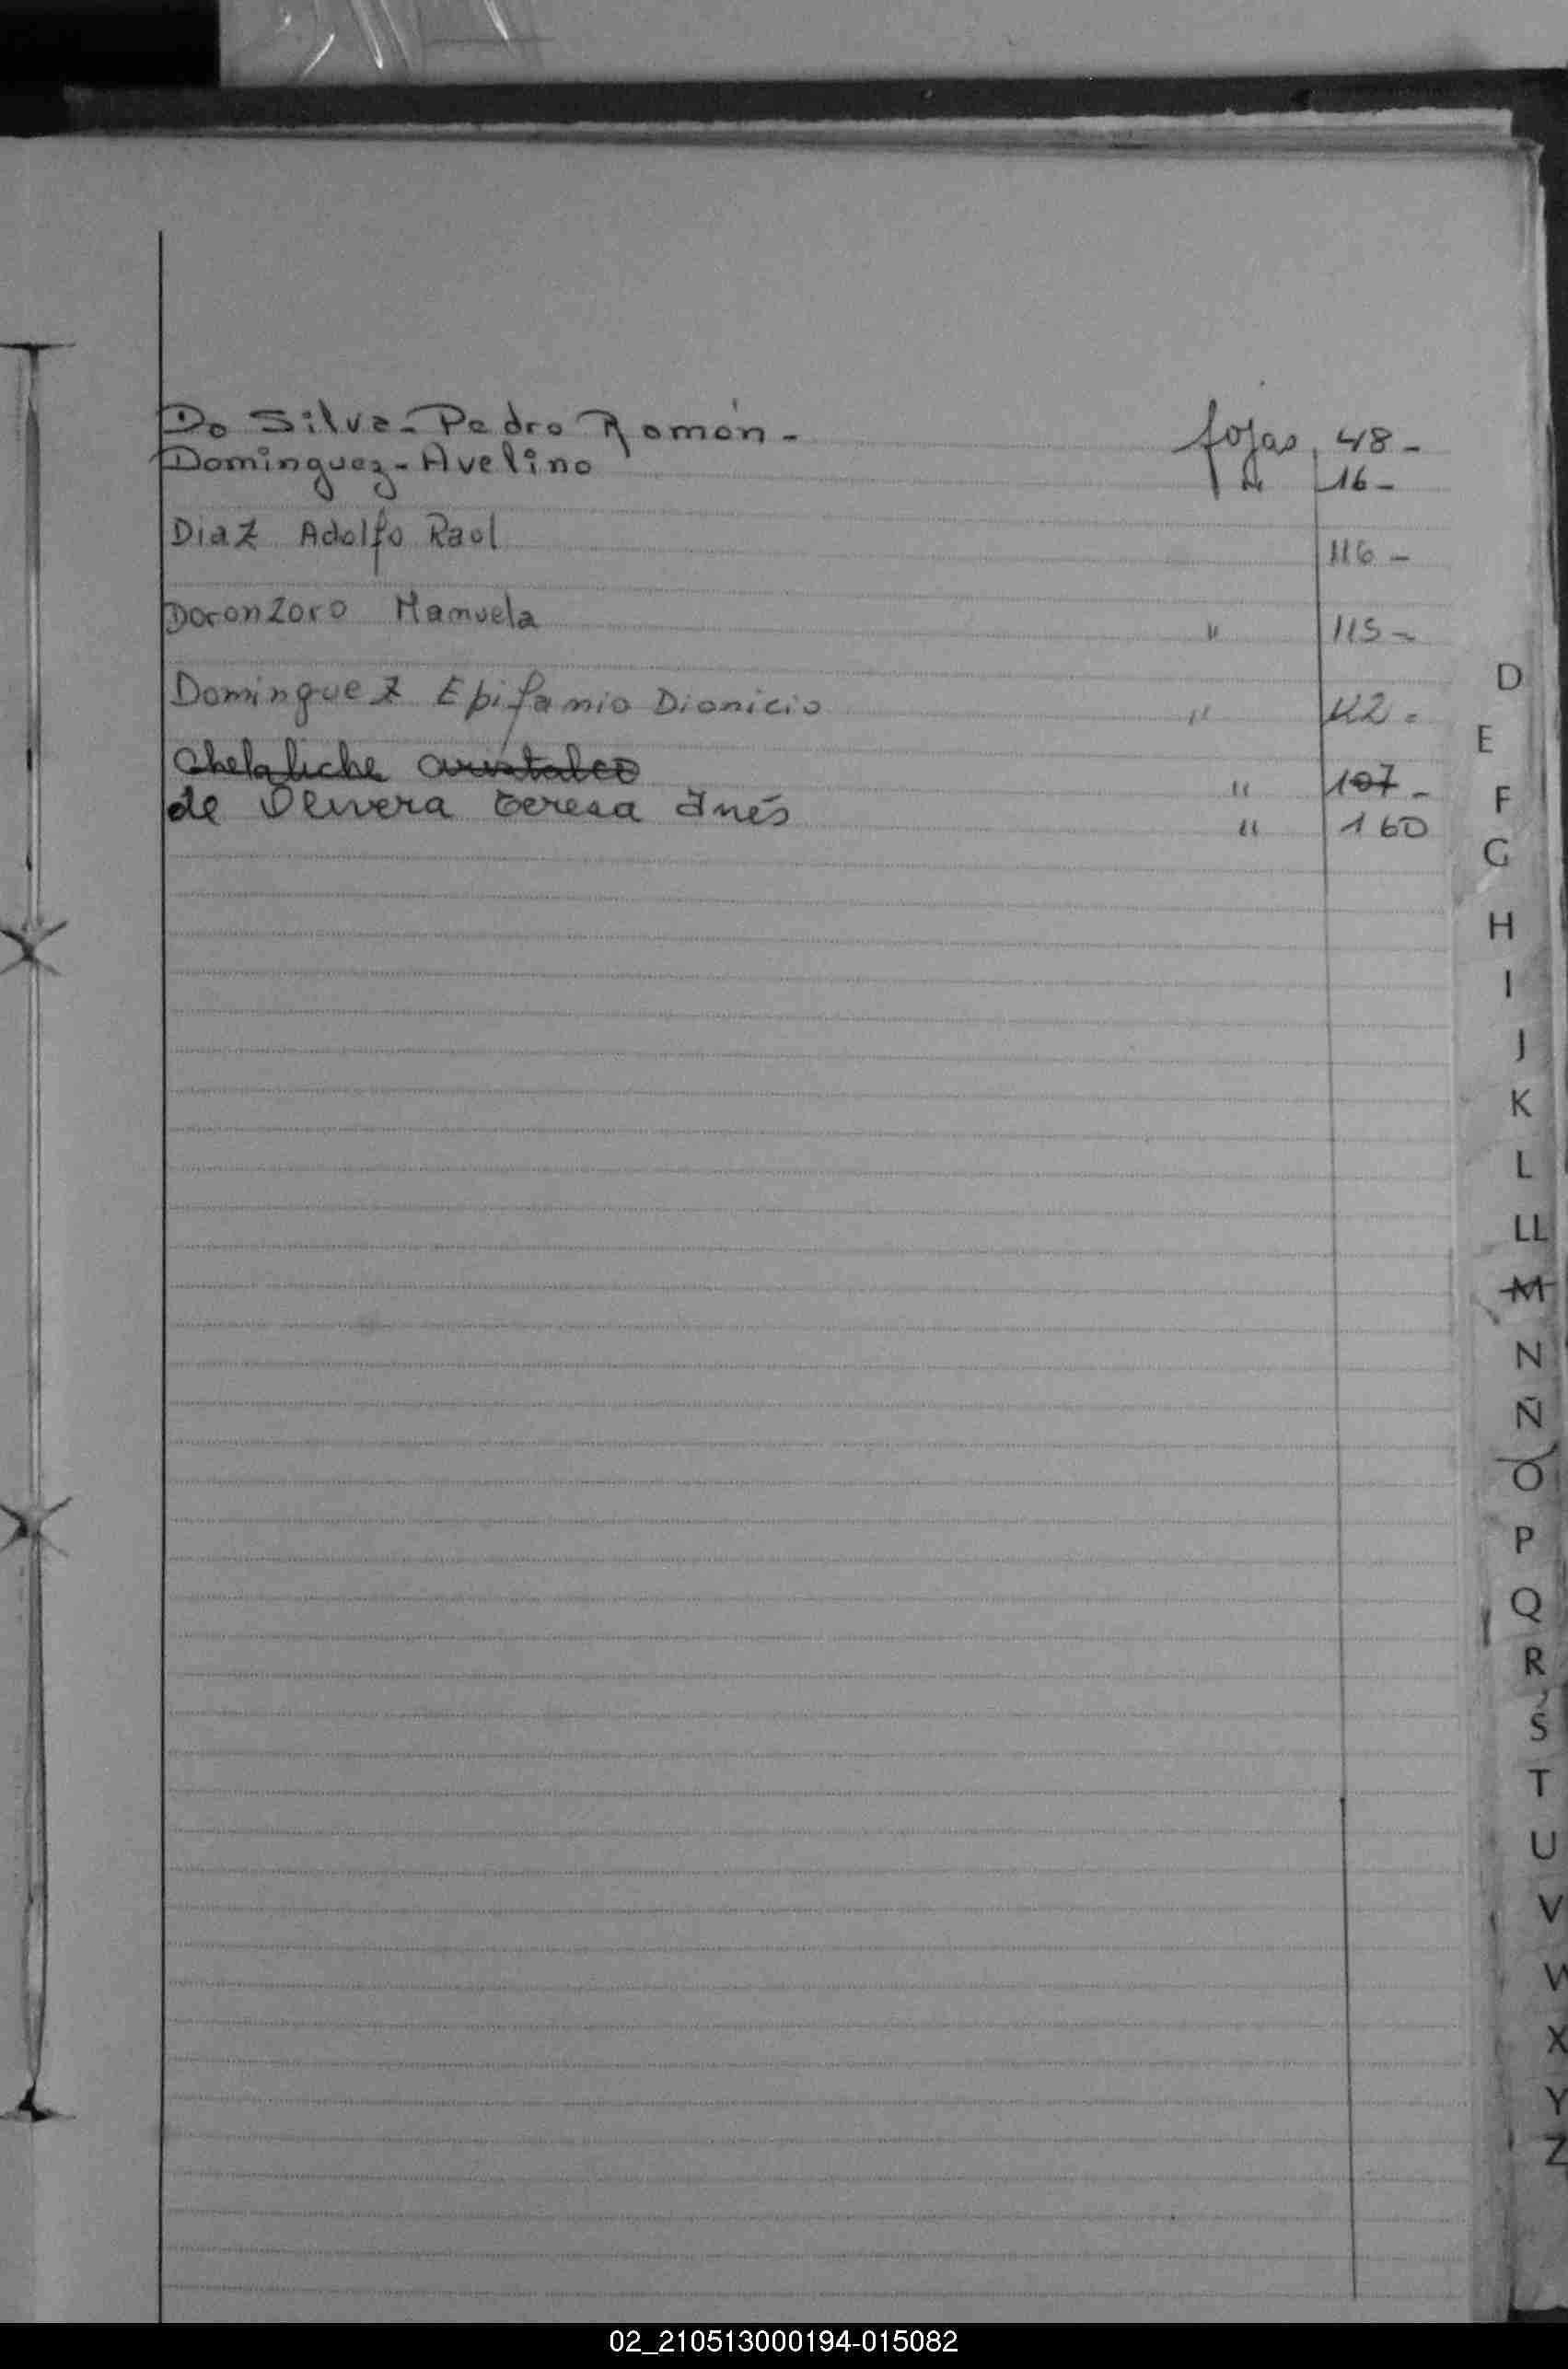 Do Silva - Pedro Ramón - fojas 48 -
Dominguez - Avelino " 16 -
Diaz Adolfo Raul 116 -
Doronzoro Manuela " 115 -
Dominguez Epifanio Dionicio " 112 -
" 107 -
de Olivera Teresa Inés " 160
D
E
F
G
H
I
J
K
L
LL
M
N
Ñ
O
P
Q
R
S
T
U
V
W
X
Y
Z
02_210513000194-015082